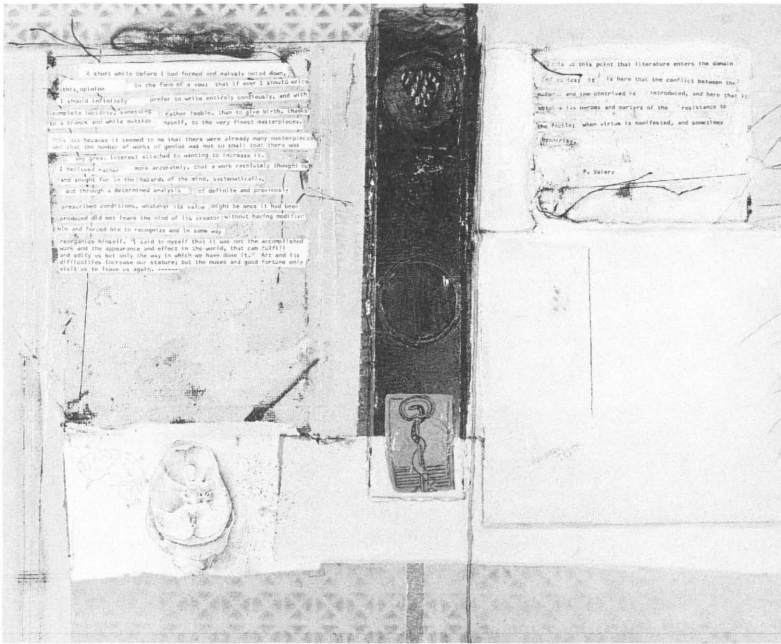 A short while before I had formed and naively noted down,
this opinion in the form of a vow: that if ever I should write
I should infinitely prefer to write entirely consciously, and with
complete lucidity, something rather feeble, than to give birth, thanks
to a trance and while outside myself, to the very finest masterpieces.
This was because it seemed to me that there were already many masterpieces
and that the number of works of genius was not so small that there was
any great interest attached to wanting to increase it.
I believed rather more accurately, that a work resolutely thought
and sought for in the hazards of the mind, systematically,
and through a determined analysis of definite and previously
prescribed conditions, whatever its value might be once it had been
produced did not leave the mind of its creator without having modified
him and forced him to recognize and in some way
reorganize himself. "I said to myself that it was not the accomplished
work and its appearance and effect in the world, that can fulfill
and edify us but only the way in which we have done it." Art and its
difficulties increase our stature; but the muses and good fortune only
visit us to leave us again. -------
is at this point that literature enters the domain
is here that the conflict between the
and the contrived is introduced, and here that it
its heroes and martyrs of the resistance to
the facile; when virtue is manifested, and sometimes
hypocrisy.
P. Valery